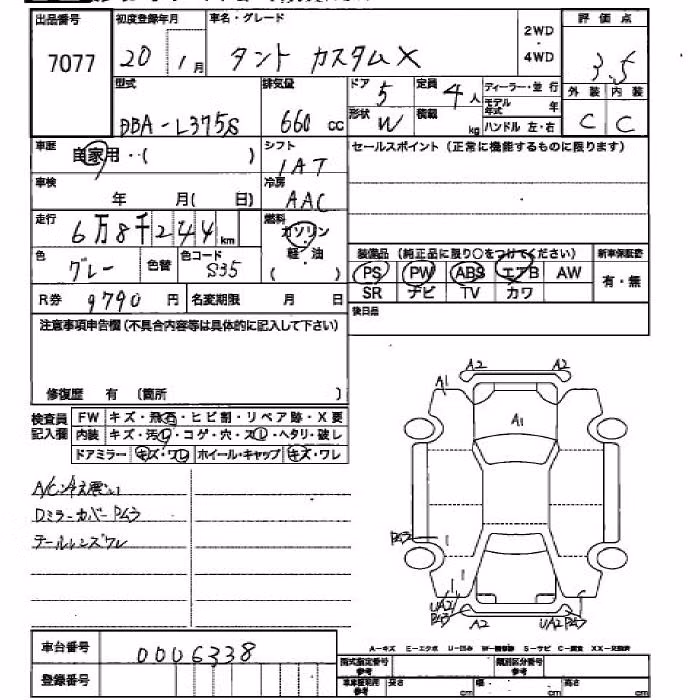 出品番号 初度登録年月 車名・グレード 2WD・4WD 評価点
7077 20 1月 タント カスタムX 3.5
型式 排気量 ドア 5 定員 4人 ディーラー・並行 外装 内装
DBA-L375S 660cc 形状 W 積載 kg モデル年式 年 C C
ハンドル 左・右
車歴 自家用・( ) シフト IAT セールスポイント(正常に機能するものに限ります)
車検 年 月( 日) 冷房 AAC
走行 6万8千244km 燃料 ガソリン
色 グレー 色替 色コード S35 軽・油 ( ) 装備品(純正品に限り○をつけてください) 新車保証書
PS PW ABS エアB AW 有・無
R券 9790円 名変期限 月 日 SR ナビ TV カワ
注意事項申告欄(不具合内容等は具体的に記入して下さい) 後日品
修復歴 有 (箇所 )
検査員記入欄 FW キズ・飛石・ヒビ割・リペア跡・X要
内装 キズ・汚レ・コゲ・穴・スレ・ヘタリ・破レ
ドアミラー キズ・ワレ ホイール・キャップ キズ・ワレ
A/C冷え悪い
Dミラーカバー P43
テールレンズワレ
A2 A2
A1
A1
P43
UA2 P43 A2 UA2 P43
車台番号 0006338
A-キズ E-エクボ U-凹み W-補修跡 S-サビ C-腐食 XX-交換済
登録番号 型式指定番号 参考 類別区分番号
車庫証明用 参考 長さ cm 幅 cm 高さ cm